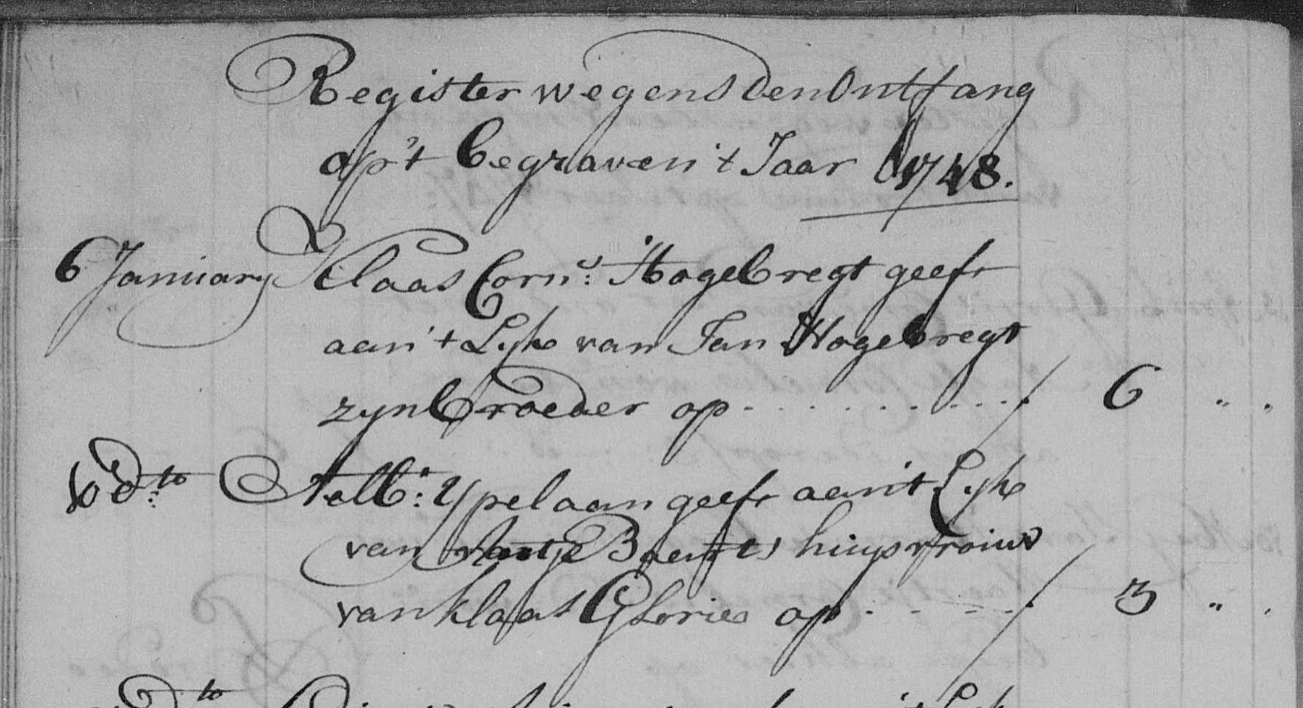 Register wegens den Ontfang
op't begraven 't Jaar 1748.
6 January Klaas Corn:s Hogebregt geeft
aan 't Lijk van Jan Hogebregt
zyn broeder op . . . . . . . . . . / 6 " "
d:to Aelb:t Ypelaan geeft aan 't Lijk
van Baerts huysvrouw
van klaas Glorie op . . . . / 3 " "
d:to